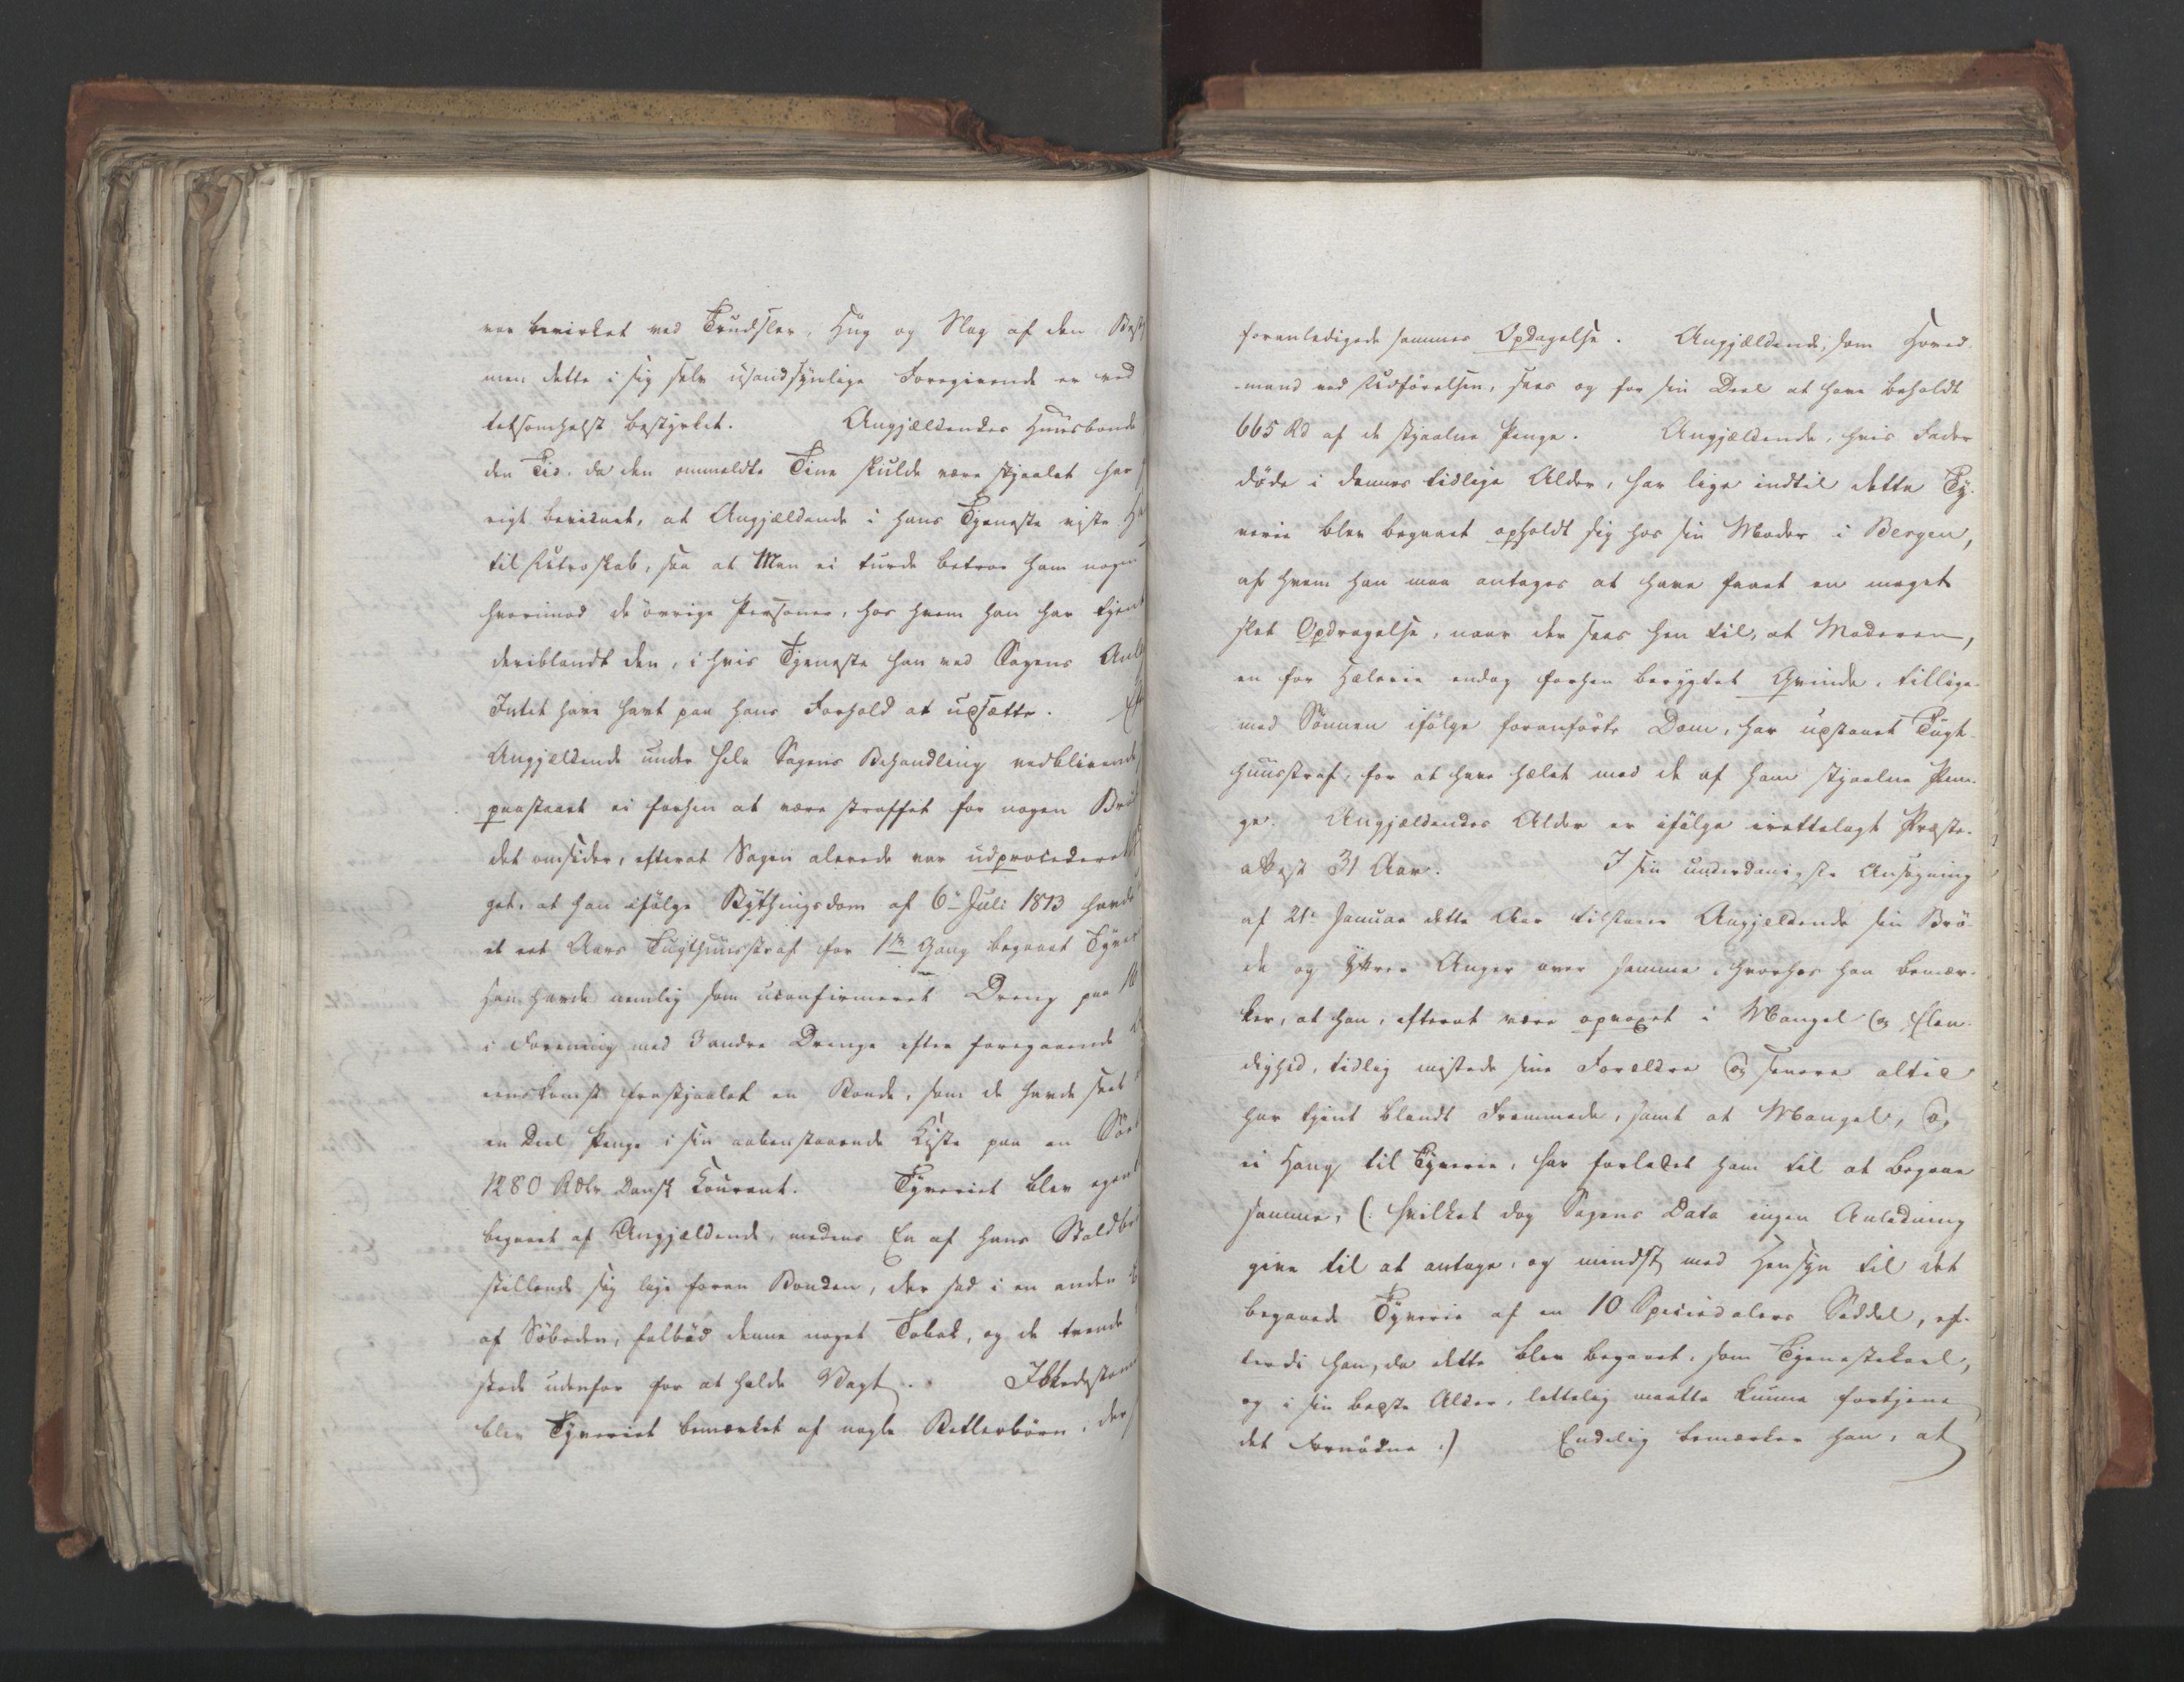 var bevirket ved Trudsler, Hug og Slag af den
men dette i sig selv usandsynlige Foregivende er ved
tetsomhelst bestyrket. Angjældendes Huusbonde
den Tid, da den ommeldte Tine skulde være stjaalet har
rigt bevidnet, at Angjældende i hans Tjeneste viste
til Utroskab, saa at Man ei turde betroe ham noget
hvorimod de övrige Personer, hos hvem han har tjent
deriblandt den, i hvis Tjeneste han ved Sagens
Intet have havt paa hans Forhold at udsætte.
Angjældende under hele Sagens Behandling vedblivende
paastaaet ei forhen at være straffet for nogen
det omsider, efterat Sagen alerede var udprocederet
get, at han ifölge Bythingsdom af 6te Juli 1813 havde
et eet Aars Tugthuusstraf for 1ste Gang begaaet
Han havde nemlig som uconfirmeret Dreng paa
i Forening med 3 andre Drenge efter foregaaende
enskomst frastjaalet en Bonde, som de havde seet
en Deel Penge i sin aabenstaaende Kiste paa en
1280 Rdlr Dansk Courant. Tyveriet blev
begaaet af Angjældende, medens En af hans
stillende sig lige foran Bonden, der sad i en anden
af Söboden, falböd denne noget Tobak, og de tvende
stode udenfor for at holde Vagt.
blev Tyveriet bemærket af nogle Betlerbörn, der
foranledigede sammes Opdagelse. Angjældende, som Hoved-
mand ved Udförelsen, saaes og for sin Deel at have beholdt
665 Rd af de stjaalne Penge. Angjældende, hvis Fader
döde i dennes tidlige Alder, har lige indtil dette Ty-
verie blev begaaet opholdt sig hos sin Moder i Bergen,
af hvem han maa antages at have faaet en meget
slet Opdragelse, naar der saaes hen til, at Moderen,
en for Hælerie endog forhen berygtet Qvinde, tillige-
med Sönnen ifölge foranförte Dom, har udstaaet Tugt-
huusstraf, for at have hælet med de af ham stjaalne Pen-
ge. Angjældendes Alder er ifölge irettelagt Præste-
attest 31 Aar. I sin underdanigste Ansögning
af 21de Januar dette Aar tilstaaer Angjældende sin Brö-
de og yttrer Anger over samme, hvorhos han bemær-
ker, at han, efterat være opvoxet i Mangel og Elen-
dighed, tidlig mistede sine Forældre og senere altid
har tjent blandt Fremmede, samt at Mangel, og
ei Hang til Tyverie, har forledet ham til at begaae
samme, (: hvilket dog Sagens Data ingen Anledning
give til at antage, og mindst med Hensyn til det
begaaede Tyverie af en 10 Speciedalers Seddel, ef-
terdi han, da dette blev begaaet, som Tjenestekarl,
og i sin bedste Alder, lettelig maatte kunne fortjene
det Fornödne :) Endelig bemærker han, at